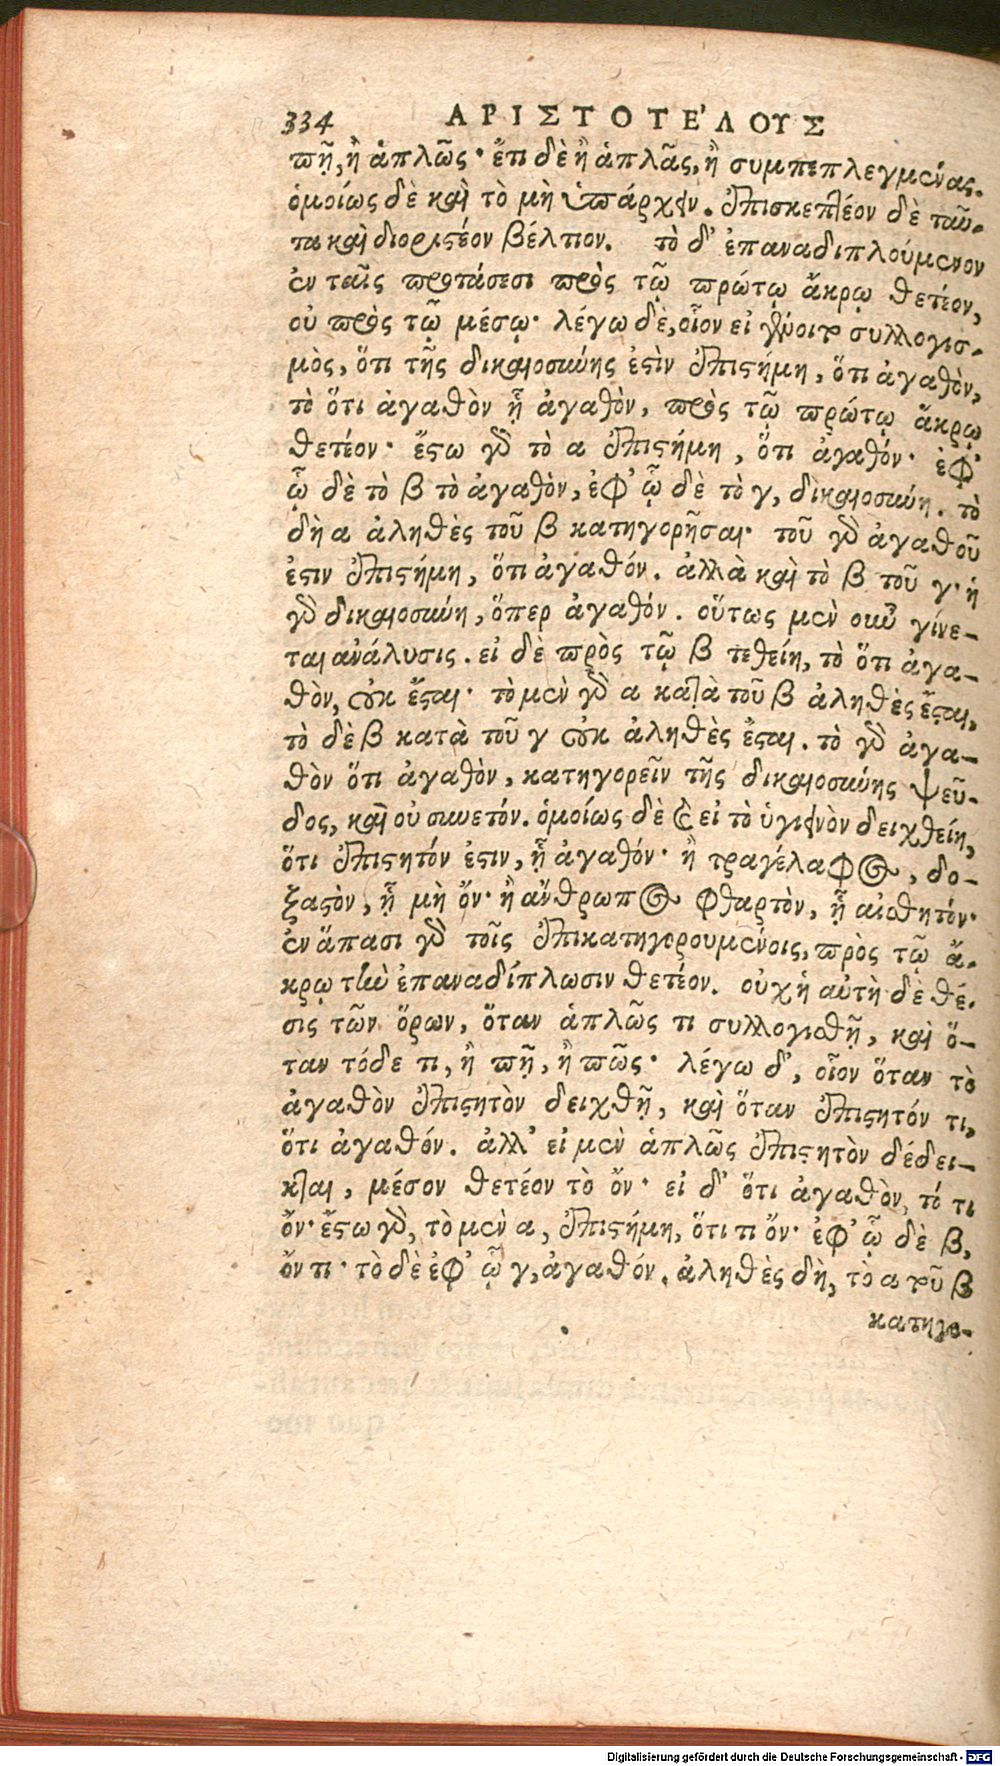 334 ΑΡΙΣΤΟΤΈΛΟΥΣ
πῇ, ἢ ἁπλῶς· ἔτι δὲ ἢ ἁπλᾶς, ἢ συμπεπλεγμένας.
ὁμοίως δὲ καὶ τὸ μὴ ὑπάρχειν. ἐπισκεπτέον δὲ ταῦ-
τα καὶ διοριστέον βέλτιον. τὸ δ' ἐπαναδιπλούμενον
ἐν ταῖς προτάσεσι πρὸς τῷ πρώτῳ ἄκρῳ θετέον,
οὐ πρὸς τῷ μέσῳ· λέγω δὲ, οἷον εἰ γένοιτο συλλογισ-
μὸς, ὅτι τῆς δικαιοσύνης ἐστὶν ἐπιστήμη, ὅτι ἀγαθὸν,
τὸ ὅτι ἀγαθὸν ᾗ ἀγαθὸν, πρὸς τῷ πρώτῳ ἄκρῳ
θετέον· ἔστω γὰρ τὸ α ἐπιστήμη, ὅτι ἀγαθόν· ἐφ'
ᾧ δὲ τὸ β τὸ ἀγαθὸν, ἐφ' ᾧ δὲ τὸ γ, δικαιοσύνη. τὸ
δὴ α ἀληθὲς τοῦ β κατηγορῆσαι· τοῦ γὰρ ἀγαθοῦ
ἐστιν ἐπιστήμη, ὅτι ἀγαθόν. ἀλλὰ καὶ τὸ β τοῦ γ· ἡ
γὰρ δικαιοσύνη, ὅπερ ἀγαθόν. οὕτως μὲν οὖν γίνε-
ται ἀνάλυσις. εἰ δὲ πρὸς τῷ β τεθείη, τὸ ὅτι ἀγα-
θὸν, οὐκ ἔσται· τὸ μὲν γὰρ α κατὰ τοῦ β ἀληθὲς ἔσται,
τὸ δὲ β κατὰ τοῦ γ οὐκ ἀληθὲς ἔσται. τὸ γὰρ ἀγα-
θὸν ὅτι ἀγαθὸν, κατηγορεῖν τῆς δικαιοσύνης ψεῦ-
δος, καὶ οὐ συνετόν. ὁμοίως δὲ καὶ εἰ τὸ ὑγιεινὸν δειχθείη,
ὅτι ἐπιστητόν ἐστιν, ᾗ ἀγαθόν· ἢ τραγέλαφος, δο-
ξαστὸν, ᾗ μὴ ὄν· ἢ ἄνθρωπος φθαρτὸν, ᾗ αἰσθητόν·
ἐν ἅπασι γὰρ τοῖς ἐπικατηγορουμένοις, πρὸς τῷ ἄ-
κρῳ τὴν ἐπαναδίπλωσιν θετέον. οὐχ ἡ αὐτὴ δὲ θέ-
σις τῶν ὅρων, ὅταν ἁπλῶς τι συλλογισθῇ, καὶ ὅ-
ταν τόδε τι, ἢ πῇ, ἢ πῶς· λέγω δ', οἷον ὅταν τὸ
ἀγαθὸν ἐπιστητὸν δειχθῇ, καὶ ὅταν ἐπιστητόν τι,
ὅτι ἀγαθόν. ἀλλ' εἰ μὲν ἁπλῶς ἐπιστητὸν δέδει-
κται, μέσον θετέον τὸ ὄν· εἰ δ' ὅτι ἀγαθὸν, τό τι
ὄν· ἔστω γὰρ, τὸ μὲν α, ἐπιστήμη, ὅτι τι ὄν· ἐφ' ᾧ δὲ β,
ὄν τι· τὸ δὲ ἐφ' ᾧ γ, ἀγαθόν. ἀληθὲς δὴ, τὸ α τοῦ β
κατηγο-
Digitalisierung gefördert durch die Deutsche Forschungsgemeinschaft - DFG